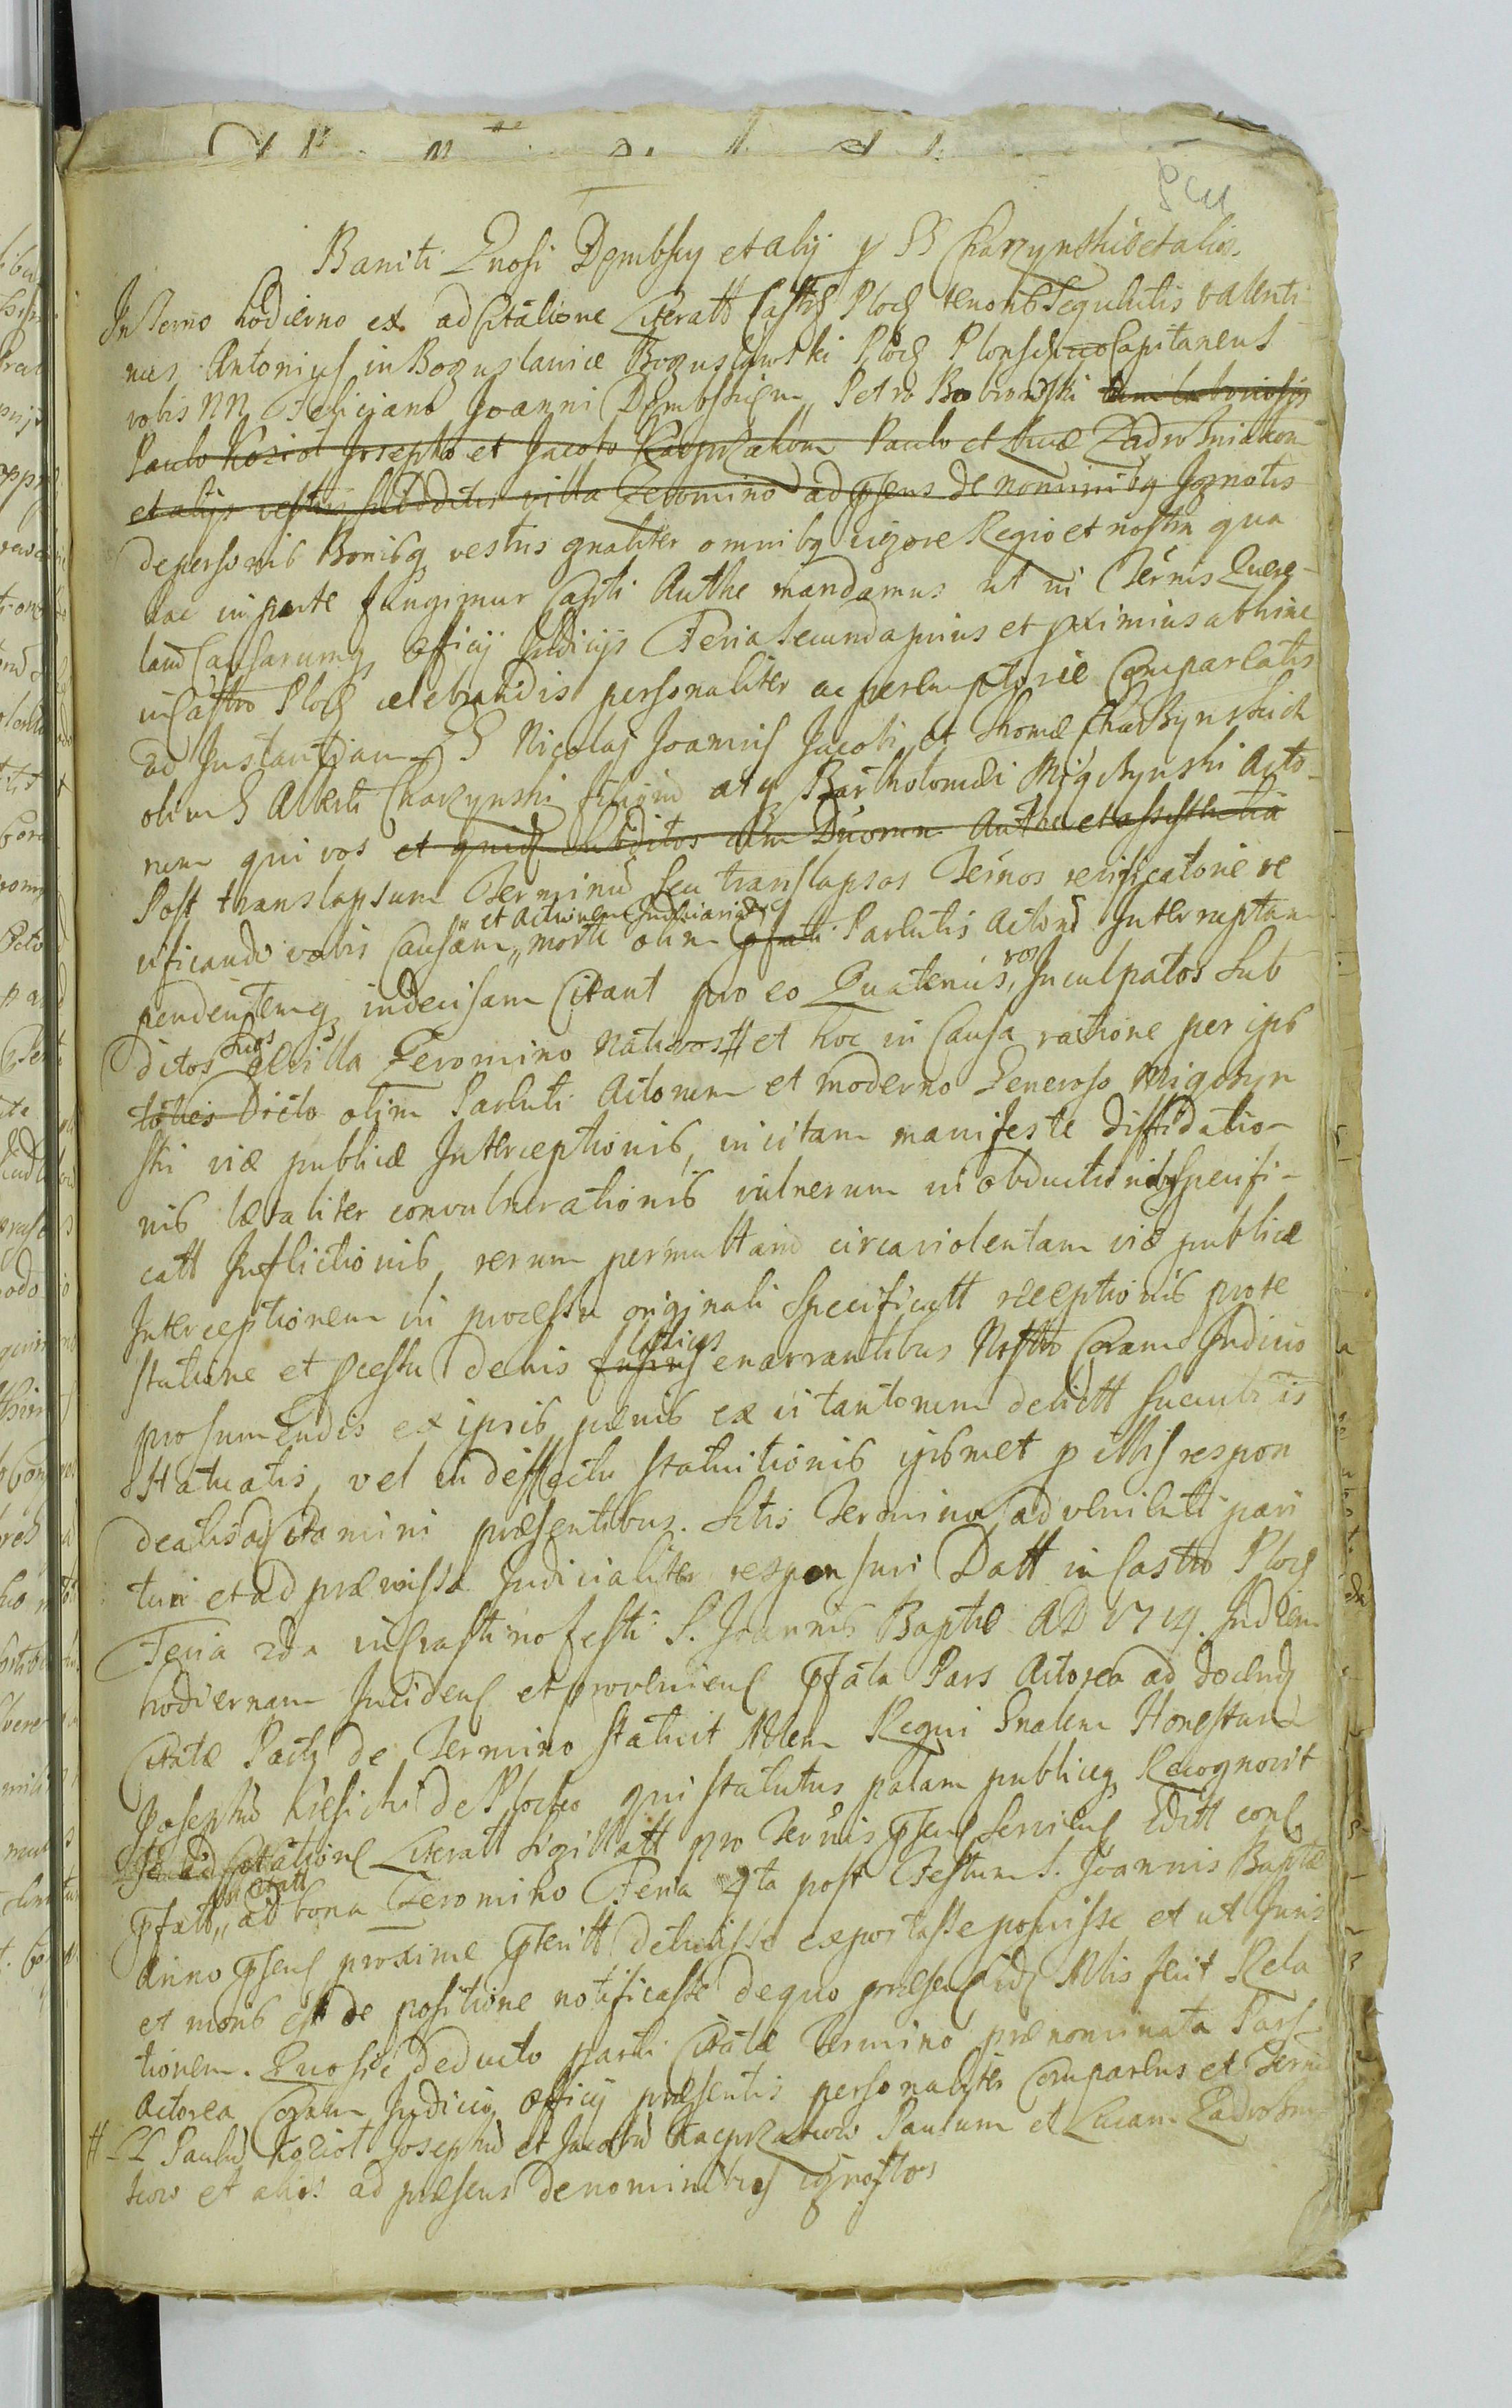 Baniti Gnosi Dembscy et alij p GG Charzynskie et alios
In Termo hodierno ex ad Citatione Literatt Castr Ploc tenoris Sequentis Valenti
nus Antonius in Boguslavice Boguslawski Ploc Plonsq Capitaneus
vobis NN Feliciano Joanni Dembskiem Petro Bobrowski
Paulo Koziol Josepho et Jacobo Kacprzakom Paulo et Lucæ Zadrosniakom
et alijs vestris subditis villa Zeromino ad psens de nominibq Ignotis
de personis Bonisq vestris gnaliter omnibq vigore Regio et nostra qua
hac in parte fungimur Capti Authe mandamus ut in Ternis Quere
lari Causarumq officij Judicijs Feria Secunda prius et pximius abhinc
in Castro Ploc celebrandis personaliter ac peremptorie Compareatis
ad Instantiam GG Nicolaj Joannis Jacobi et Thomæ Charzynskich
olim G Alberti Charzynski filiorum atq Bartholomæi Migdzynski Acto
rum qui vos et quidem subditos cum Duorum Authe et assistentia
Post translapsum Terminu Seu translapsos Termos reificatorie re
ificando vobis Causam " et Actionem Judiciariam morte olim pfati Parentis Actorum Interruptam
pendentemq indecisam Citant pro eo Quatenus vos, Inculpatos Sub
ditos suos de villa Zeromino Nativos # et hoc in Causa ratione per ipsos
toties Dicto olim Parenti Actorum et moderno Generoso Migdzyn
ski viæ publicæ Interceptionis, in vitam manifeste diffidatio
nis lætaliter convulnerationis vulnerum in obductionibq Specifi
catt Inflictionis, rerum permultarum circa violentam viæ publicæ
Interceptionem in processu originali Specificatt receptionis prote
statione et pcessu de his fusius latius enarrantibus Nostro Coram Judicio
pro sumendis ex ipsis pœnis ex vi tantorum delictt succumbitis
Statuatis, vel in deffectu statuitionis ipsmet p illis respon
deatis ad Citamini præsentibus. Sitis Termino advenienti pari
turi et ad præmissa Judicialiter responsuri Datt in Castro Ploc
Feria 2da in Crastino festi S. Joannis Baptæ AD 1714. In diem
hodiernam Incidens et proveniens pfata Pars Actorea ad docend
Citatæ Parti de Termino statuit Mlem Regni Gnalem Honestum
Josephu Kiesicki de Plocko qui statutus palam publiceq Recognovit
Se ad Citatione Literatt Sigillatt pro Ternis psens Serviens Editt cons
pfatt " ad bona Zeromino Feria 4ta post Festum S. Joannis Baptæ
Anno psens proxime pterit detulisse exportasse posuisse et ut Juris
et moris est de positione notificasse de quo præsens idq Mlis fecit Rela
tionem. Quo sic deducto parti Citatæ Termino prænominata Pars
Actorea Coram Judicio officij præsentis personaliter Comparens et Termi
# Paulu Koziol Josephu et Jacobu Kacprzakow Paulum et Lucam Zadrosnia
kow et alios ad præsens de nominibus ignotos